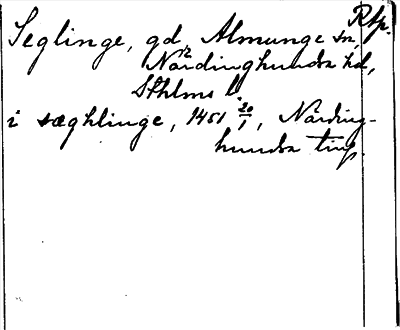 Rfp.
Seglinge, gd, Almunge sn,
Närdinghundra hd,
Sthlms l.
i sæghlinge, 1451 20/1, Närding-
hundra ting.